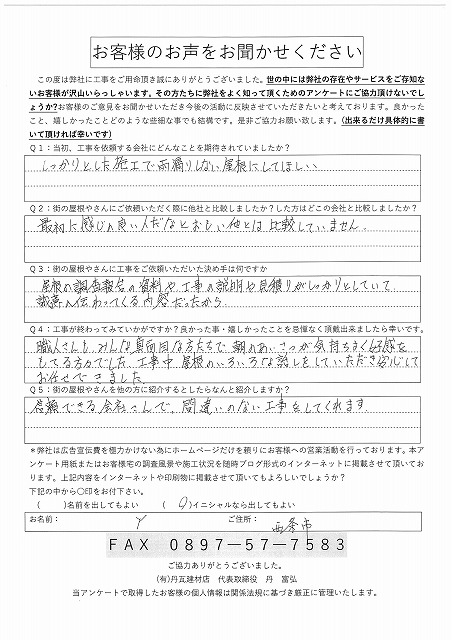 お客様のお声をお聞かせください
この度は弊社に工事をご用命頂き誠にありがとうございました。世の中には弊社の存在やサービスをご存知な
いお客様が沢山いらっしゃいます。その方たちに弊社をよく知って頂くためのアンケートにご協力頂けないでし
ょうか?お客様のご意見をお聞かせいただき今後の活動に反映させていただきたいと考えております。良かった
こと、嬉しかったことどのような些細な事でも結構です。是非ご協力お願い致します。(出来るだけ具体的に書
いて頂ければ幸いです)
Q1:当初、工事を依頼する会社にどんなことを期待されていましたか?
しっかりとした施工で雨漏りしない屋根にしてほしい
Q2:街の屋根やさんにご依頼いただく際に他社と比較しましたか?した方はどこの会社と比較しましたか?
最初に感じの良い人だなとおもい他とは比較していません。
Q3:街の屋根やさんに工事をご依頼いただいた決め手は何ですか
屋根の調査報告の資料や工事の説明や見積りがしっかりとしていて
誠意が伝わってくる内容だったから。
Q4:工事が終わってみていかがですか?良かった事・嬉しかったことを忌憚なく頂戴出来ましたら幸いです。
職人さんもみんな真面目な方たちで朝のあいさつが気持ちよく好感を
もてる方々でした。工事中屋根のいろいろな話しをしていただき安心して
お任せできました
Q5:街の屋根やさんを他の方に紹介するとしたらなんと紹介しますか?
信頼できる会社さんで、間違いのない工事をしてくれます
*弊社は広告宣伝費を極力かけない為にホームページだけを頼りにお客様への営業活動を行っております。本ア
ンケート用紙またはお客様宅の調査風景や施工状況を随時ブログ形式のインターネットに掲載させて頂いて
おります。上記内容をインターネットや印刷物に掲載させて頂いてもよろしいでしょうか?
下記の中から〇印をお付下さい。
( )名前を出してもよい (〇)イニシャルなら出してもよい
お名前: Y ご住所: 西条市
FAX 0897-57-7583
ご協力ありがとうございました。
(有)丹瓦建材店 代表取締役 丹 富弘
当アンケートで取得したお客様の個人情報は関係法規に基づき厳正に管理いたします。